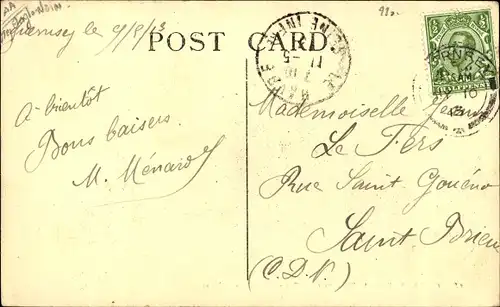 Guernsey le 9/8/13
POST CARD
A bientôt
Bons baisers
M. Ménard
Mademoiselle Jeanne
Le Fers
Rue Saint Gouéno
Saint Brieuc
(C.D.N.)